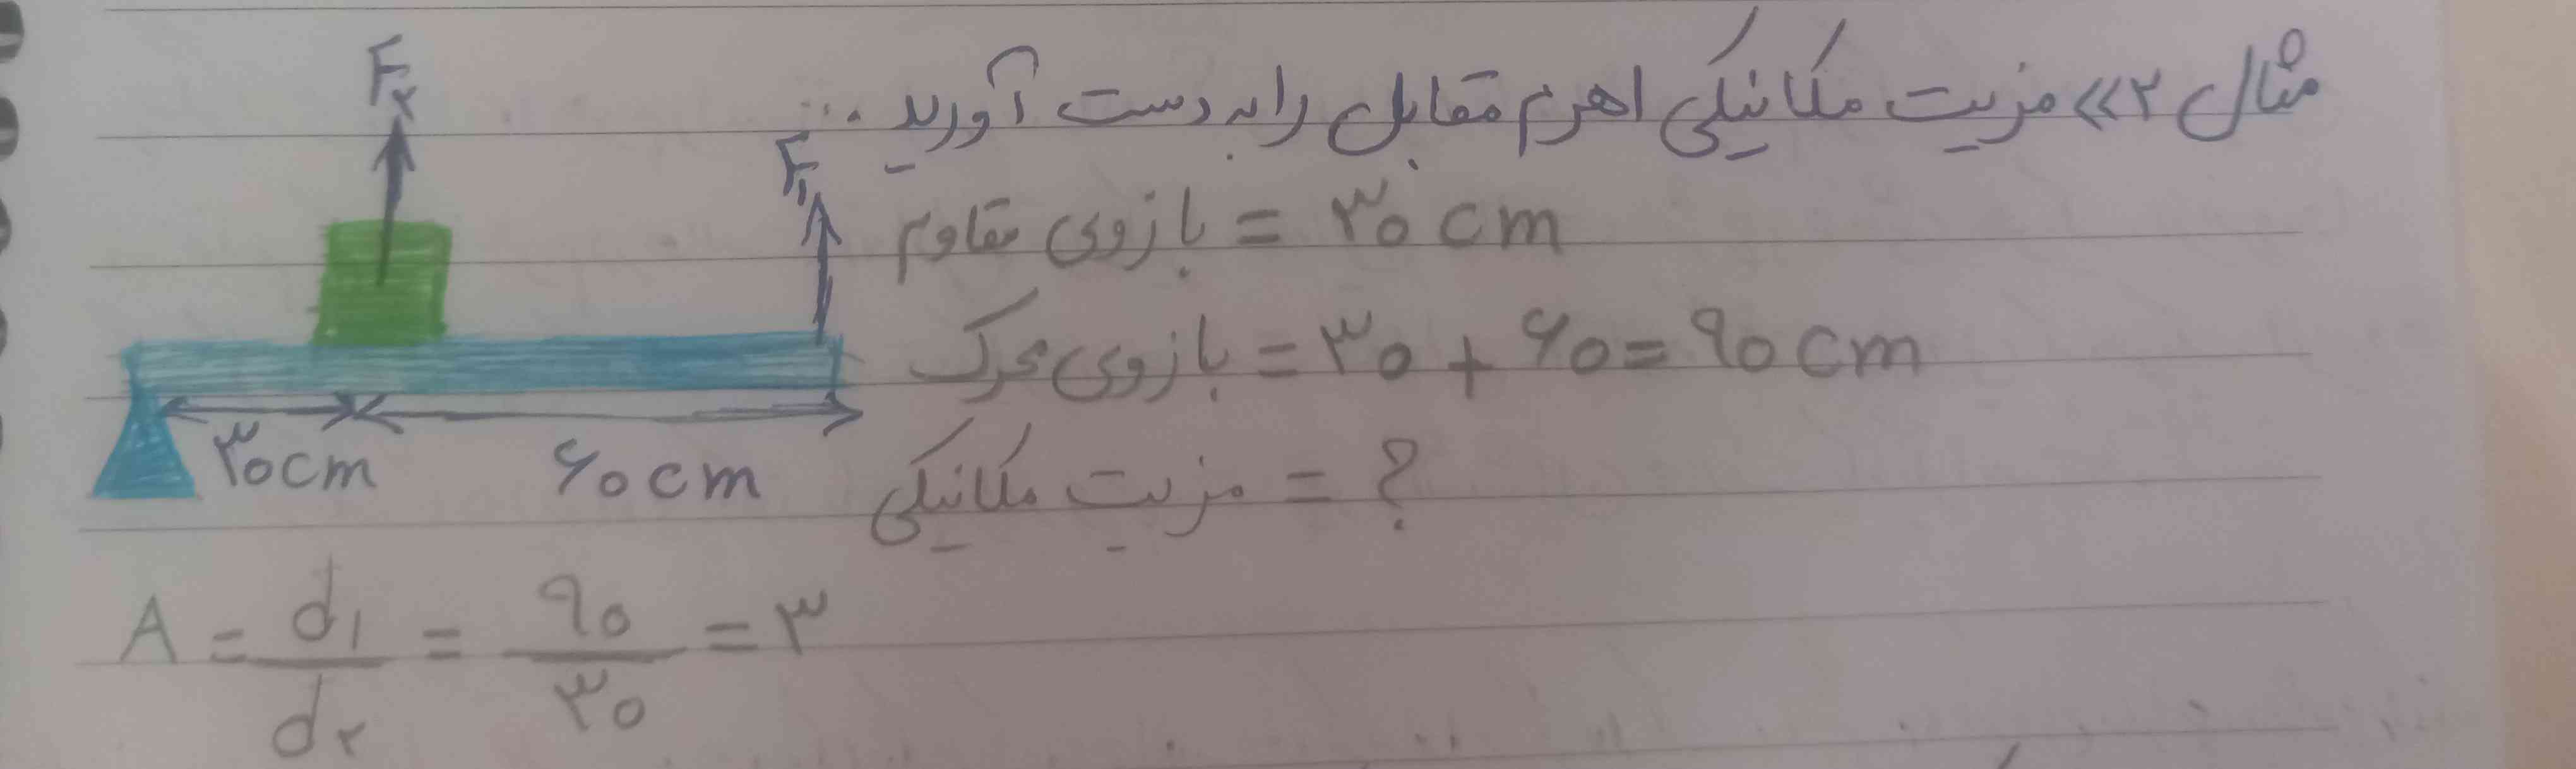 مثال ۲» مزیت مکانیکی اهرم مقابل را به دست آورید ...
F۲
F۱
بازوی مقاوم = ۳۰ cm
بازوی محرک = ۳۰ + ۶۰ = ۹۰ cm
۳۰ cm
۶۰ cm
مزیت مکانیکی = ?
A = d۱ / d۲ = ۹۰ / ۳۰ = ۳